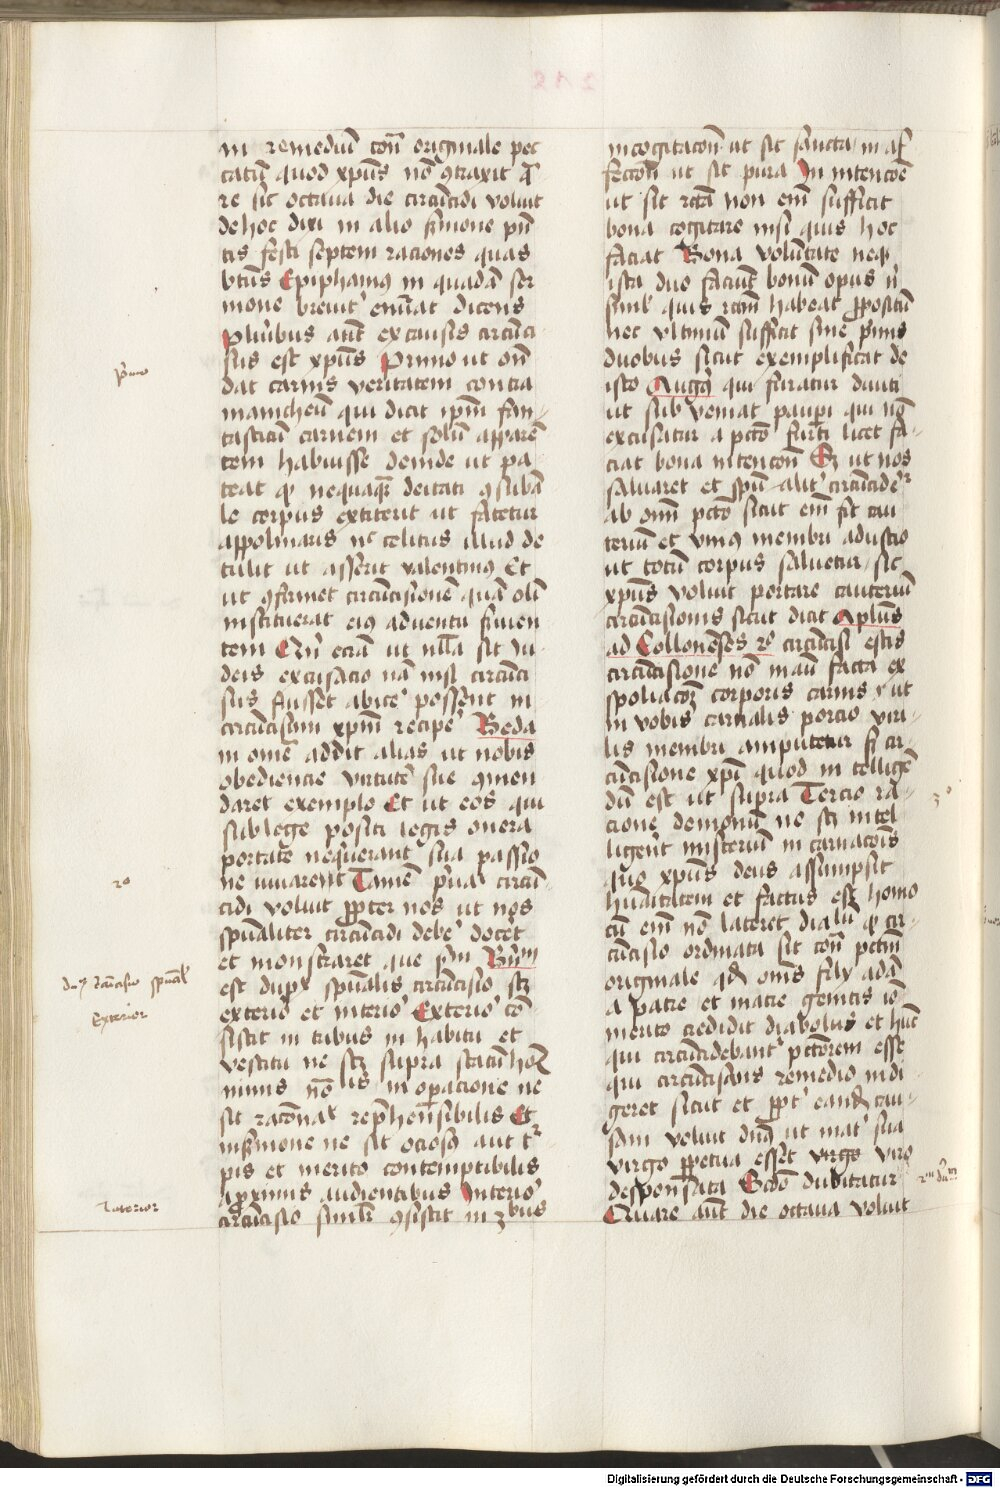 in remediu͞ con͞ originale pec
catu͞ quod xpu͞s no͞ ɔtraxit q͞
re sic octaua die circu͞cidi voluit
de hoc dixi in alio s͞mone pn͞
tis festi septem raciones quas
bt͞us Epiphaniꝰ in quada͞ ser
mone breuit' enu͞iat dicens
Pluribus aut͞ ex causis circu͞ci
sus est xpu͞s Primo ut on͞
dat carnis veritatem contra
manicheu͞ qui dicit ipm͞ fan
tasticu͞ carnem et solu͞ appare͞
tem habuisse deinde ut pa
teat ꝙ nequaqua͞ deitati ɔsuba͞
le corpus extiterit ut fatetur
appolinaris nec celitus illud de
tulit ut asserit valentinꝰ Et
ut ɔfirmet circu͞cisione͞ qua͞ oli͞
instituerat eiꝰ aduentu s͞uien
tem
 ecia͞ ut nu͞lla sit iu
deis excusacio na͞ nisi circu͞ci
sus fuisset abice' possent in
circu͞cisum xpm͞ recipe' Beda
in omel' addit alias ut nobis
obediencie virtute͞ sue ɔmen
daret exemplo Et ut eos qui
sub lege positi legis onera
portate nequerant sua passio
ne iuuaret Tame͞ p'ua circu͞
cidi voluit ꝓpter nos ut nos
spu͞aliter circu͞cidi debe' docet
et monstraret que scd͞m Bn͞m
est duplx spu͞alis circu͞cisio scꝫ
exterio' et interio' Exterio' co͞
sistit in tribus in habitu et
vestitu ne scꝫ supra statu͞ ho͞
minis
 in operacione ne
sit racon͞al' rep'hensibilis Et
in s͞mone ne sit ociosꝰ aut t'
pis et merito contemptibilis
a ꝓximis audientibus Interio'
circu͞cisio simil'r ɔsistit in 3bus
in cogitacon͞ ut sit sancta in af
feccon͞ ut sit pura In intencoe͞
ut sit recta non eni͞ sufficit
bona cogitare nisi quis hoc
faciat Bona voluntate neqꝫ
ista duo faciu͞t bonu͞ opus n'
simul quis rectu͞ habeat ꝓpositu͞
nec vltimu͞ sufficit sine p'mis
duobus sicut exemplificat de
isto Augꝰ qui furatur diuiti
ut sub veniat paup̱i qui no͞
excusatur a pcc͞to furti licet fa
ciat bona intencon͞ Et ut nos
saluaret et spu͞alit' circu͞cide'r
ab om͞i pcc͞to sicut eni͞ fit cau
teriu͞ et vniꝰ membri adustio
ut totu͞ corpus saluetur sic
xpu͞s voluit portare cauteriu͞
circu͞cisionis sicut dicit aplu͞s
ad Collonenses 2o circu͞cisi estis
circu͞cisione no͞ manu facta ex
spoliacoꝫ corporis carnis ut
in vobis carnalis porcio viri
lis membri amputetur s cir
cu͞cisione xpi͞ quod in tellige͞
du͞ est ut supra Tercio ra
cione demonu͞ ne scꝫ intel
ligerent misteriu͞ in carnacois
quo xpu͞s deus assumpsit
hu͞anitatem et factus est homo
cu͞ eni͞ no͞ lateret dialu͞ ꝙ cir
cu͞cisio ordinata sit con͞ pcc͞tm
originale qd͞ om͞s filij ada͞
a patre et matre genitis io͞
merito credidit diabolus et hu͞c
qui circu͞cidebant' pcc͞torem esse
qui circu͞cisionis remedio indi
geret sicut et ꝓpt' eande͞ cau
sam voluit dn͞s ut mat' sua
virgo ꝑpetua esset virgo viro
desponsata Scd͞o dubitatur
Quare aut͞ die octaua voluit
p'mo
2o
Exterior
Interior
3o
Digitalisierung gefördert durch die Deutsche Forschungsgemeinschaft - DFG